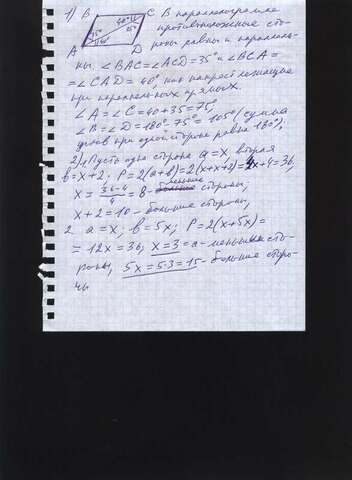 1) B C В параллелограмме
40° 35° противоположные сто-
A D роны равны и параллель-
ны. ∠BAC=∠ACD=35° и ∠BCA=
=∠CAD=40° как накрест лежащие
при параллельных прямых.
∠A=∠C=40+35=75°,
∠B=∠D=180°-75°=105° (сумма
углов при одной стороне равна 180°).
2) 1. Пусть одна сторона a=x вторая
b=x+2; P=2(a+b)=2(x+x+2)=4x+4=36,
x=36-4/4=8- меньше стороны;
x+2=10- большие стороны;
2 a=x; b=5x; P=2(x+5x)=
=12x=36; x=3=a- меньшие сто-
роны; 5x=5·3=15- большие сторо-
ны